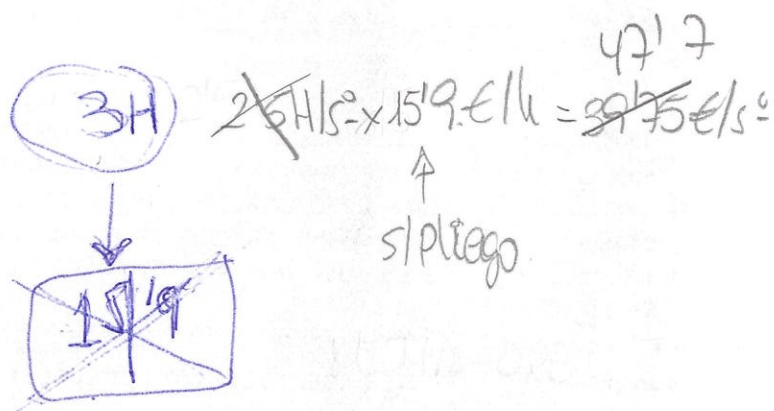 47'7
3H 2'5H/sº x 15'9 €/h = 39'75 €/sº
s/pliego
15'9